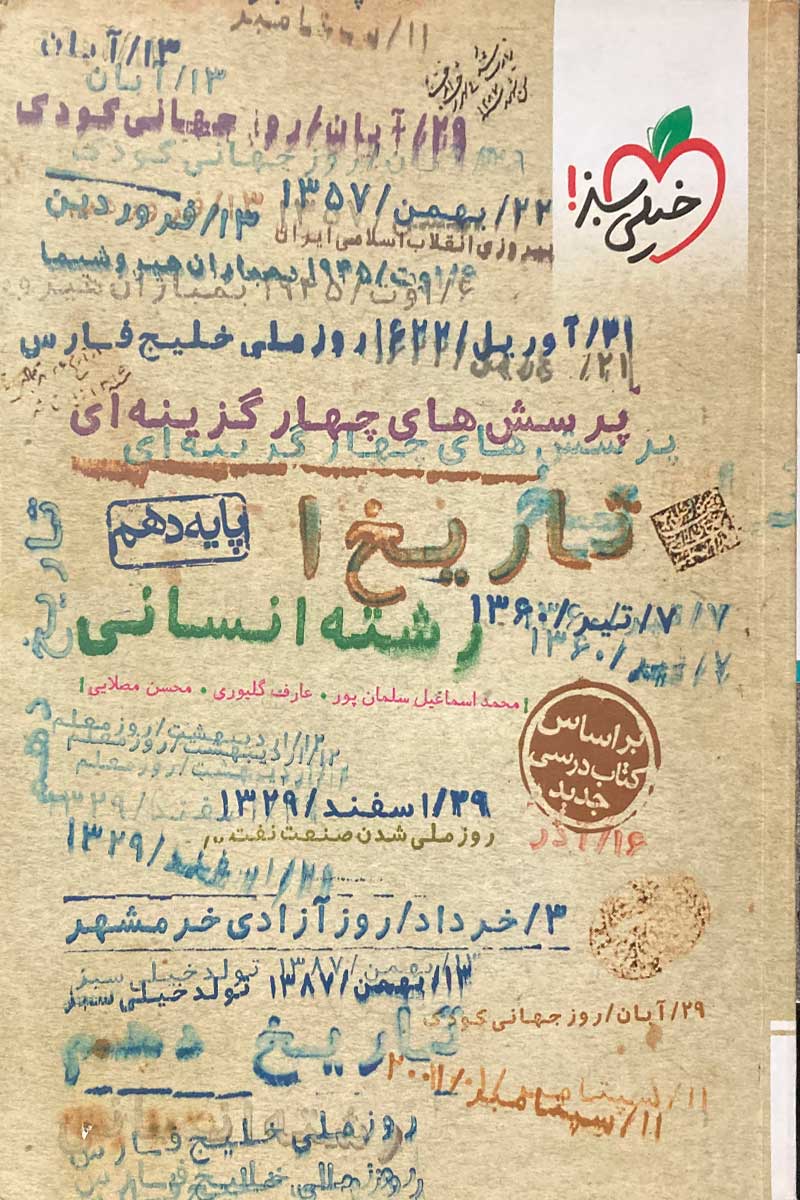 ۱۱/سپتامبر
۱۳/آبان
۱۳/آبان
۲۹/آبان/روز جهانی کودک
خیلی سبز!
۲۲/بهمن/۱۳۵۷
۱۳/فروردین
پیروزی انقلاب اسلامی ایران
۶/اوت/۱۹۴۵ بمباران هیروشیما
۲۱/آوریل/۱۶۲۲ روز ملی خلیج فارس
پرسش های چهار گزینه ای
پرسش های چهار گزینه ای
تاریخ ۱
پایه دهم
رشته انسانی
۷/تیر/۱۳۶۰
۷/تیر/۱۳۶۰
تاریخ دهم
محمد اسماعیل سلمان پور • عارف گلپوری • محسن مصلایی
براساس
کتاب درسی
جدید
۱۲/اردیبهشت/روز معلم
۱۲/اردیبهشت/روز معلم
۱۲/اردیبهشت/روز معلم
۲۹/اسفند/۱۳۲۹
روز ملی شدن صنعت نفت
۱۶/آذر
۲۹/اسفند/۱۳۲۹
۳/خرداد/روز آزادی خرمشهر
۱۳/بهمن/۱۳۸۷ تولد خیلی سبز
۲۹/آبان/روز جهانی کودک
تاریخ دهم
۱۱/سپتامبر/۲۰۰۱
۱۱/سپتامبر
رشته انسانی
روز ملی خلیج فارس
روز ملی خلیج فارس